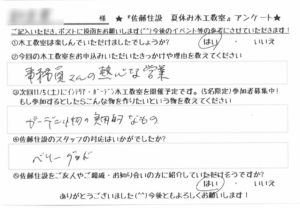 ★『佐藤住設 夏休み木工教室』アンケート★
ご記入いただき、ポストに投函をお願いします(^^)今後のイベント等の参考にさせていただきます!
①木工教室は楽しんでいただけましたでしょうか? はい ・ いいえ
②今回の木工教室をお申込みいただいたきっかけや理由を教えてください
事務員さんの熱心な営業
③次回11/5(土)にインテリア・ガーデン木工教室を開催予定です。(15名限定)参加者募集中!
もし参加するとしたらこんな物を作りたいという物を教えてください
ガーデニング物の実用的なもの
④佐藤住設のスタッフの対応はいかがでしたか?
ベリーグッド
⑤佐藤住設をご友人やご親戚・お知り合いの方に紹介していただけそうですか?
はい ・ いいえ
ありがとうございました(^^)今後ともよろしくお願いします!